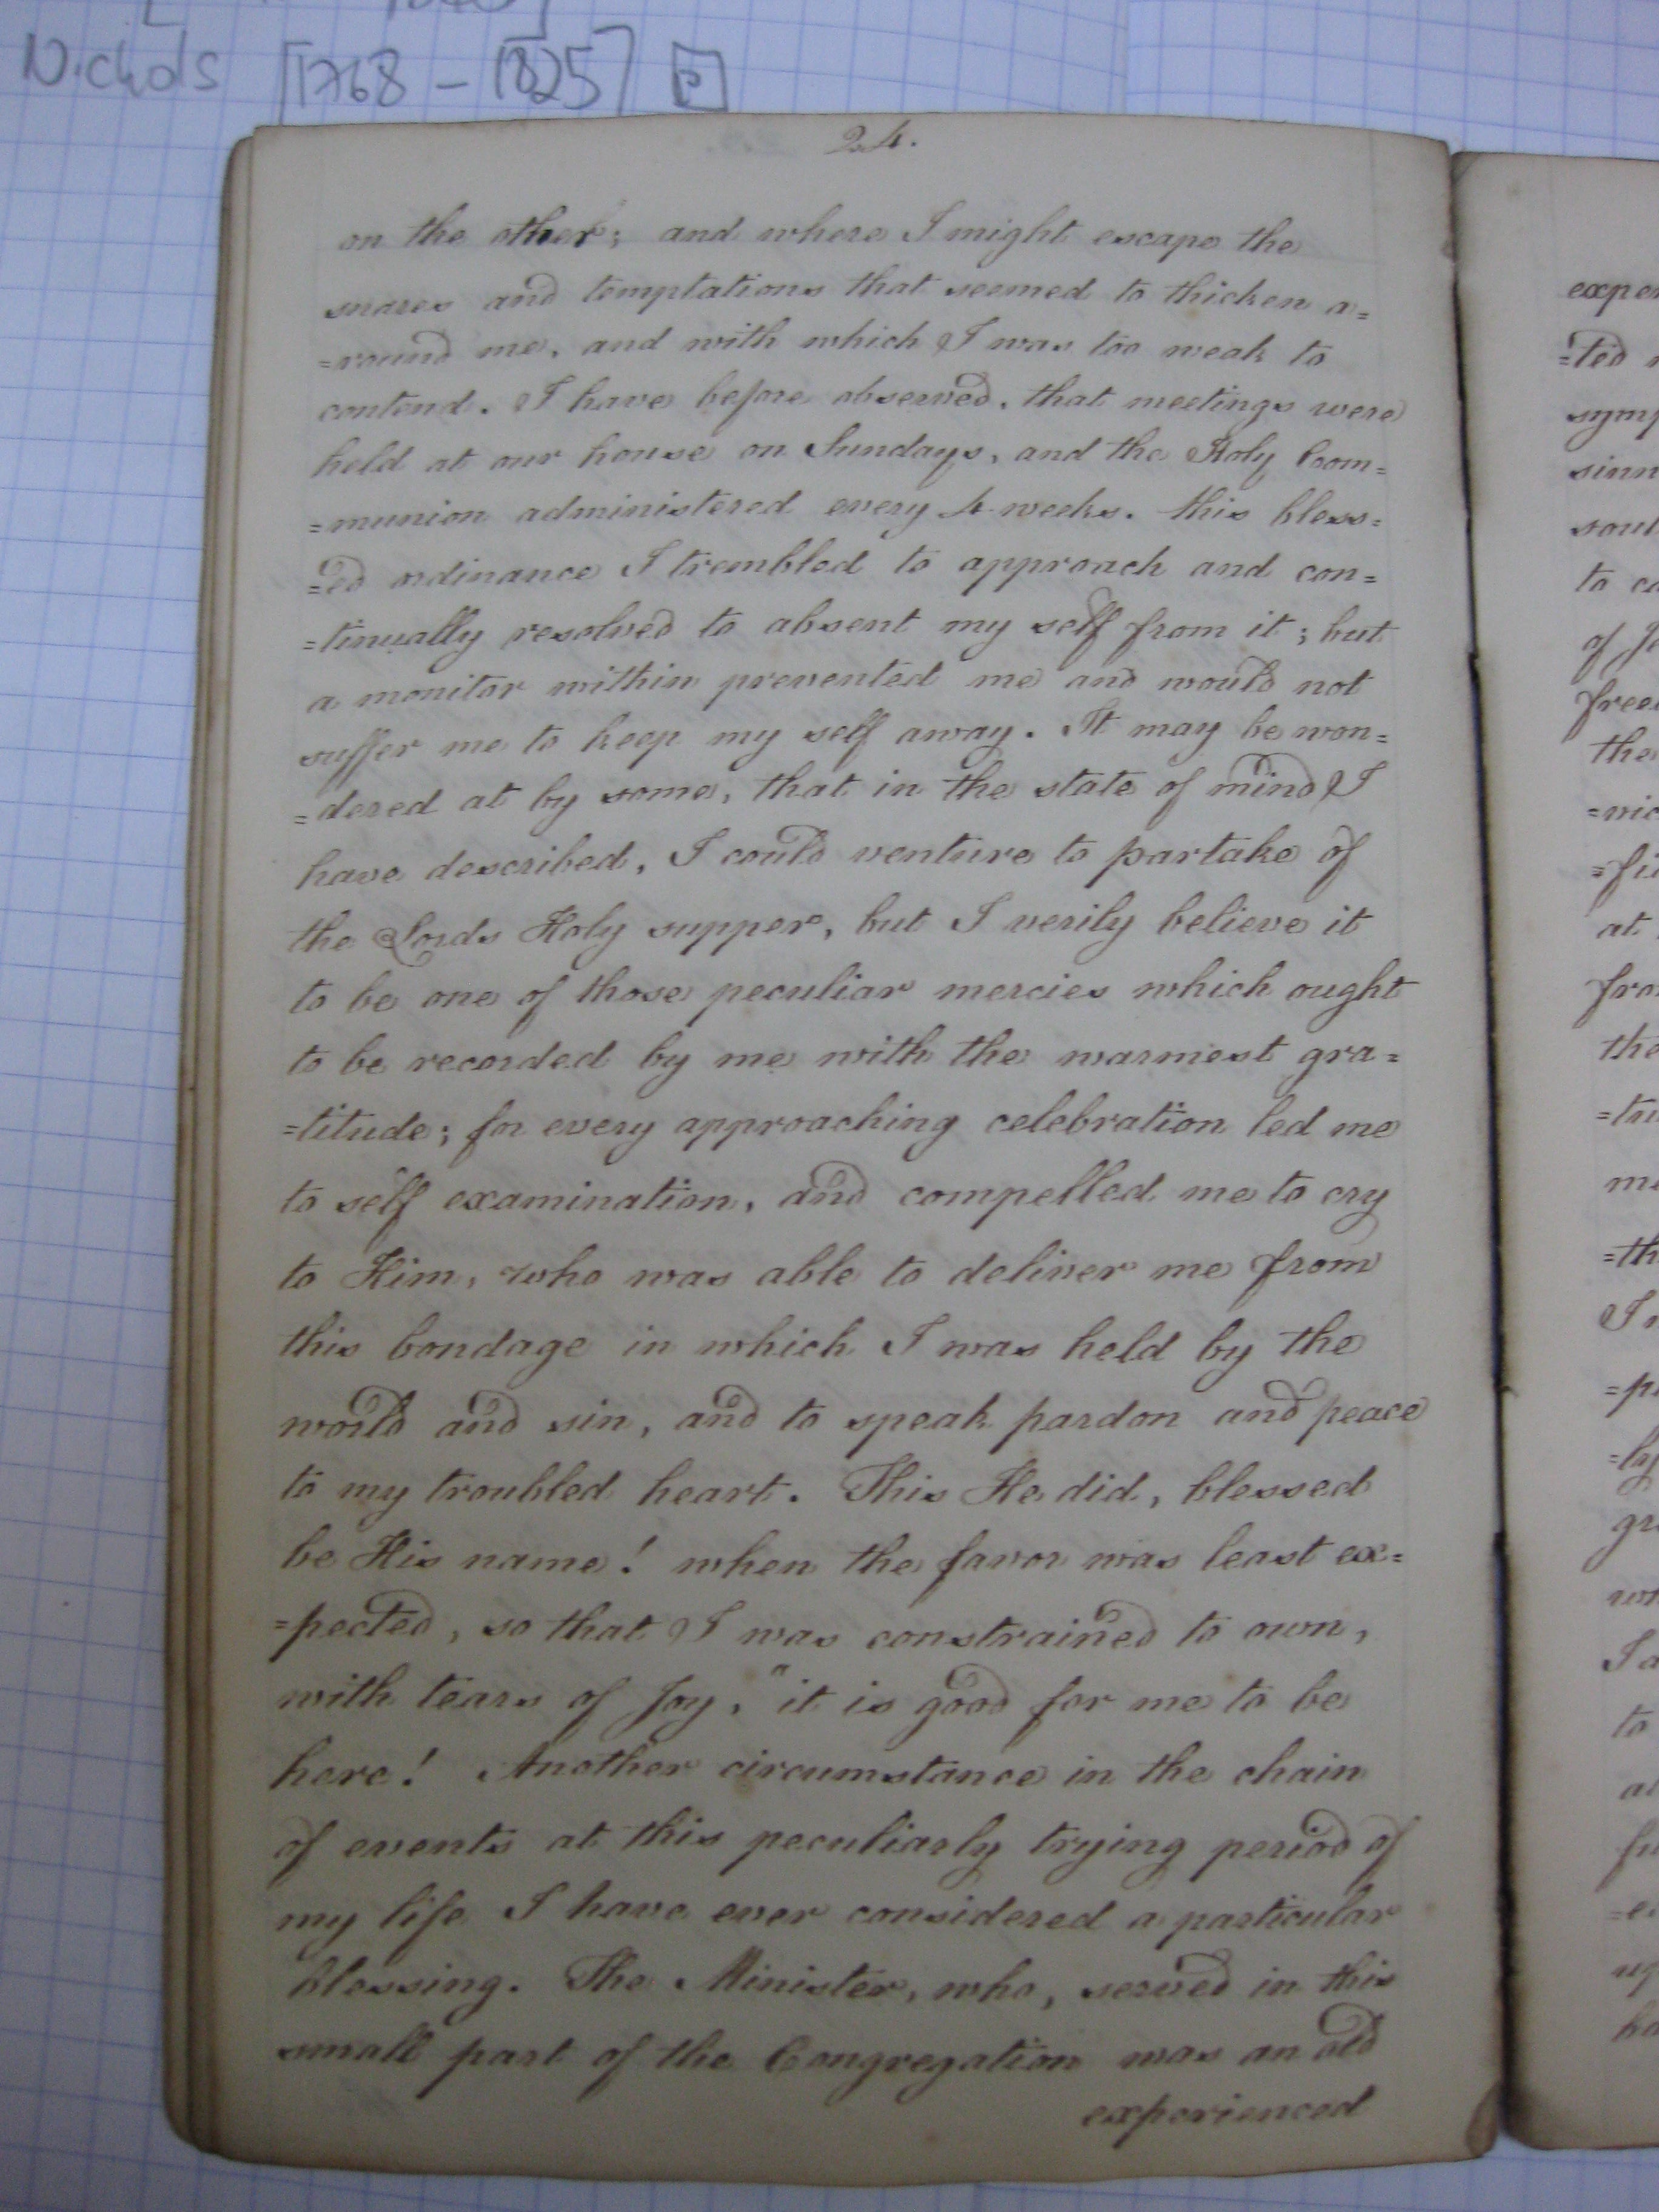 Nichols [1768 – 1825] P
24.
on the other; and where I might escape the
snares and temptations that seemed to thicken a=
=round me, and with which I was too weak to
contend. I have before observed, that meetings were
held at our house on Sundays, and the Holy Com=
=munion administered every 4 weeks. this bless=
=ed ordinance I trembled to approach and con=
=tinually resolved to absent my self from it; but
a monitor within prevented me and would not
suffer me to keep my self away. It may be won=
=dered at by some, that in the state of mind I
have described, I could venture to partake of
the Lords Holy supper, but I verily believe it
to be one of those peculiar mercies which ought
to be recorded by me with the warmest gra=
=titude; for every approaching celebration led me
to self examination, and compelled me to cry
to Him, who was able to deliver me from
this bondage in which I was held by the
world and sin, and to speak pardon and peace
to my troubled heart. This He did, blessed
be His name! when the favor was least ex=
=pected, so that I was constrained to own,
with tears of Joy, "it is good for me to be
here! Another circumstance in the chain
of events at this peculiarly trying period of
my life I have ever considered a particular
blessing. The Minister, who, served in this
small part of the Congregation was an old
experienced
exper
=ted
symp
sinn
soul
to ca
of Je
free
the
=vic
=fu
at
from
the
me
=th
I
=ly
to